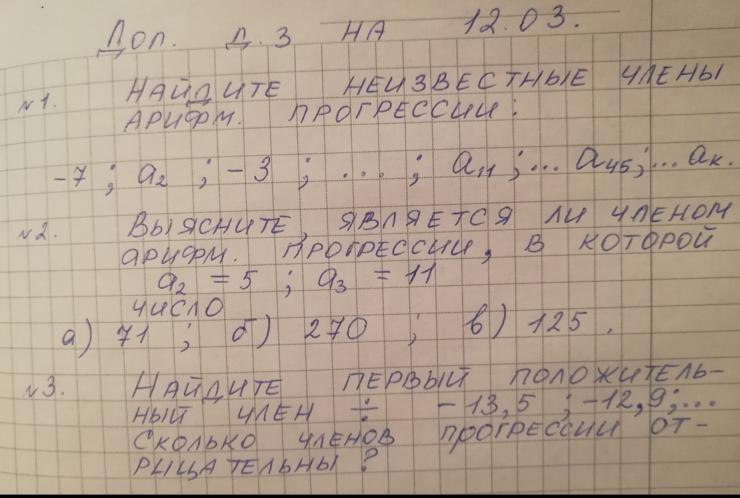 Доп. Д.З НА 12.03.
№1. НАЙДИТЕ НЕИЗВЕСТНЫЕ ЧЛЕНЫ
АРИФМ. ПРОГРЕССИИ:
-7 ; a₂ ; -3 ; ... ; a₁₁ ; ... a₄₅; ... aₖ.
№2. ВЫЯСНИТЕ, ЯВЛЯЕТСЯ ЛИ ЧЛЕНОМ
АРИФМ. ПРОГРЕССИИ, В КОТОРОЙ
a₂ = 5 ; a₃ = 11
ЧИСЛО
а) 71 ; б) 270 ; в) 125 .
№3. НАЙДИТЕ ПЕРВЫЙ ПОЛОЖИТЕЛЬ-
НЫЙ ЧЛЕН ÷ -13,5 ; -12,9; ...
СКОЛЬКО ЧЛЕНОВ ПРОГРЕССИИ ОТ-
РИЦАТЕЛЬНЫ?